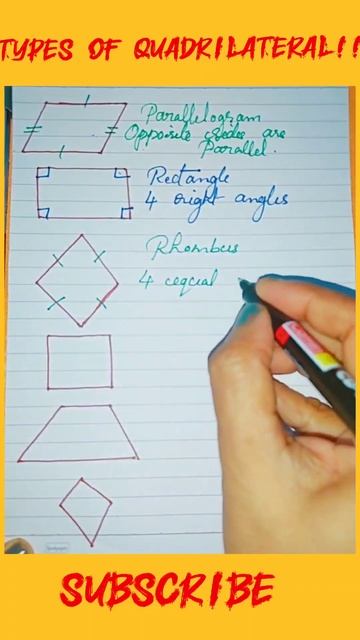 TYPES OF QUADRILATERAL!!
Parallelogram
Opposite sides are
Parallel.
Rectangle
4 right angles
Rhombus
4 equal
SUBSCRIBE